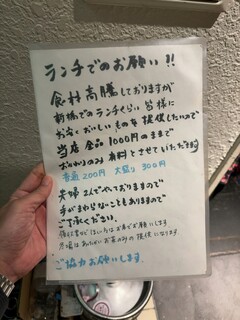 ランチでのお願い!!
食材高騰しておりますが
新橋でのランチくらい皆様に
お安くおいしいものを提供したいので
当店全品1000円のままで
おかわりのみ有料とさせていただきます
普通200円 大盛り300円
夫婦2人でやっておりますので
手がまわらないこともありますので
ご了承ください。
お願いします
冬場はあたたかいお茶のみの提供になります
ご協力お願いします。